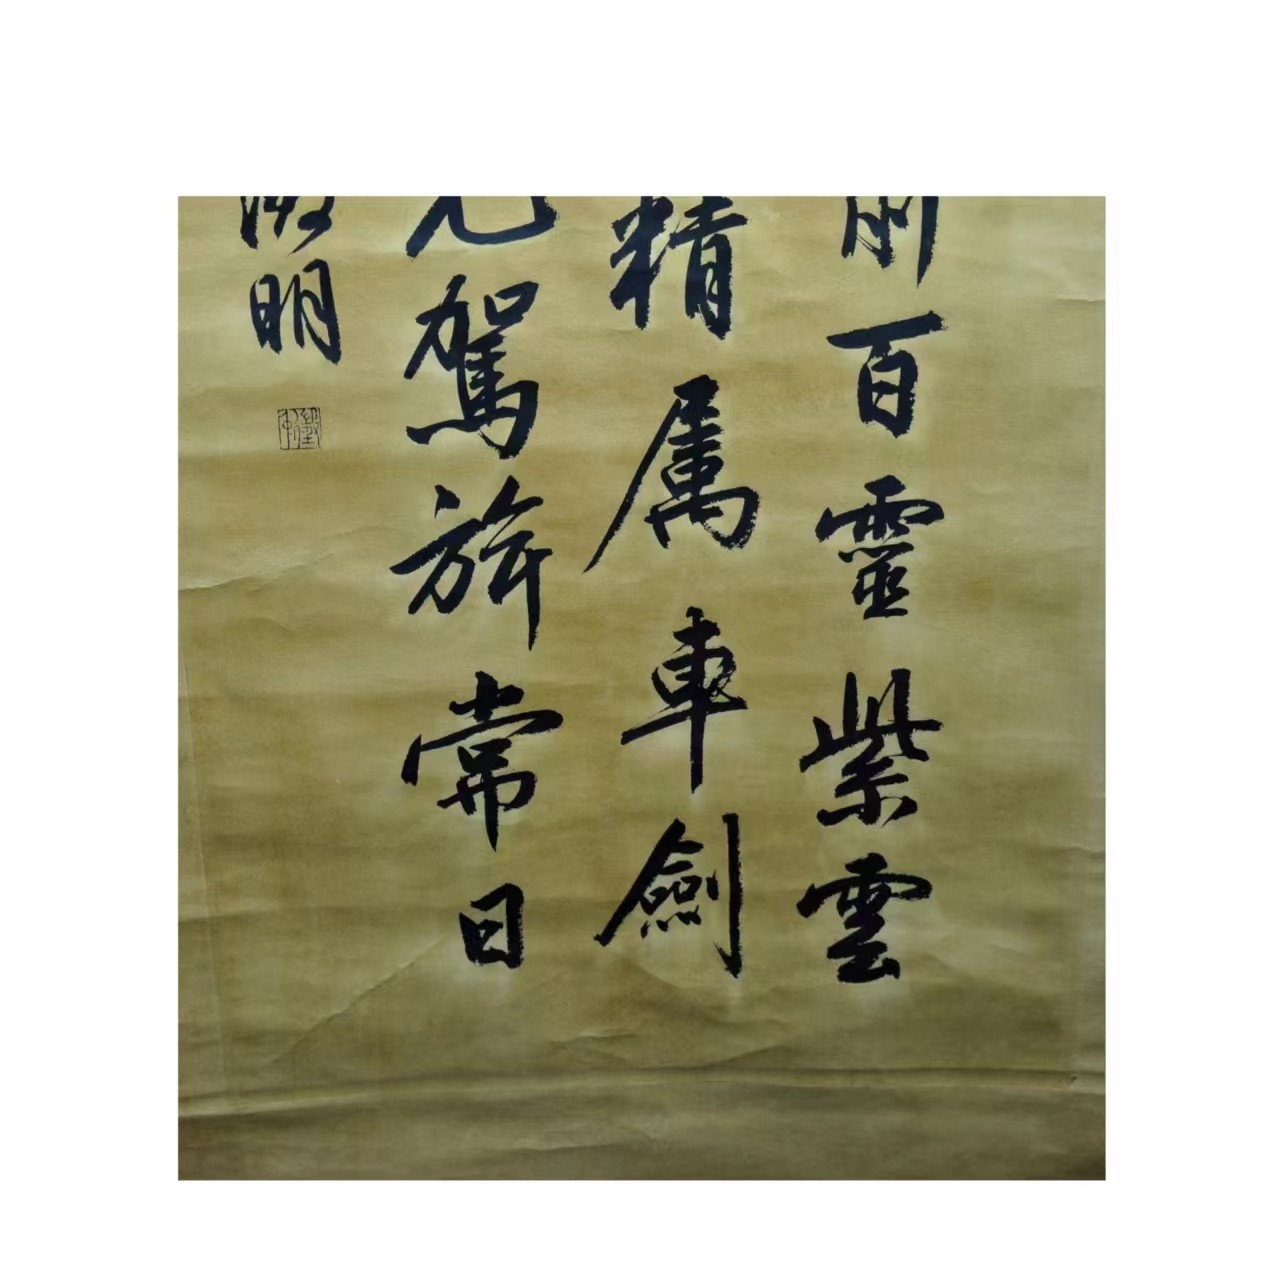 前百靈紫雲
精属車劍
駕旂常日
徵明